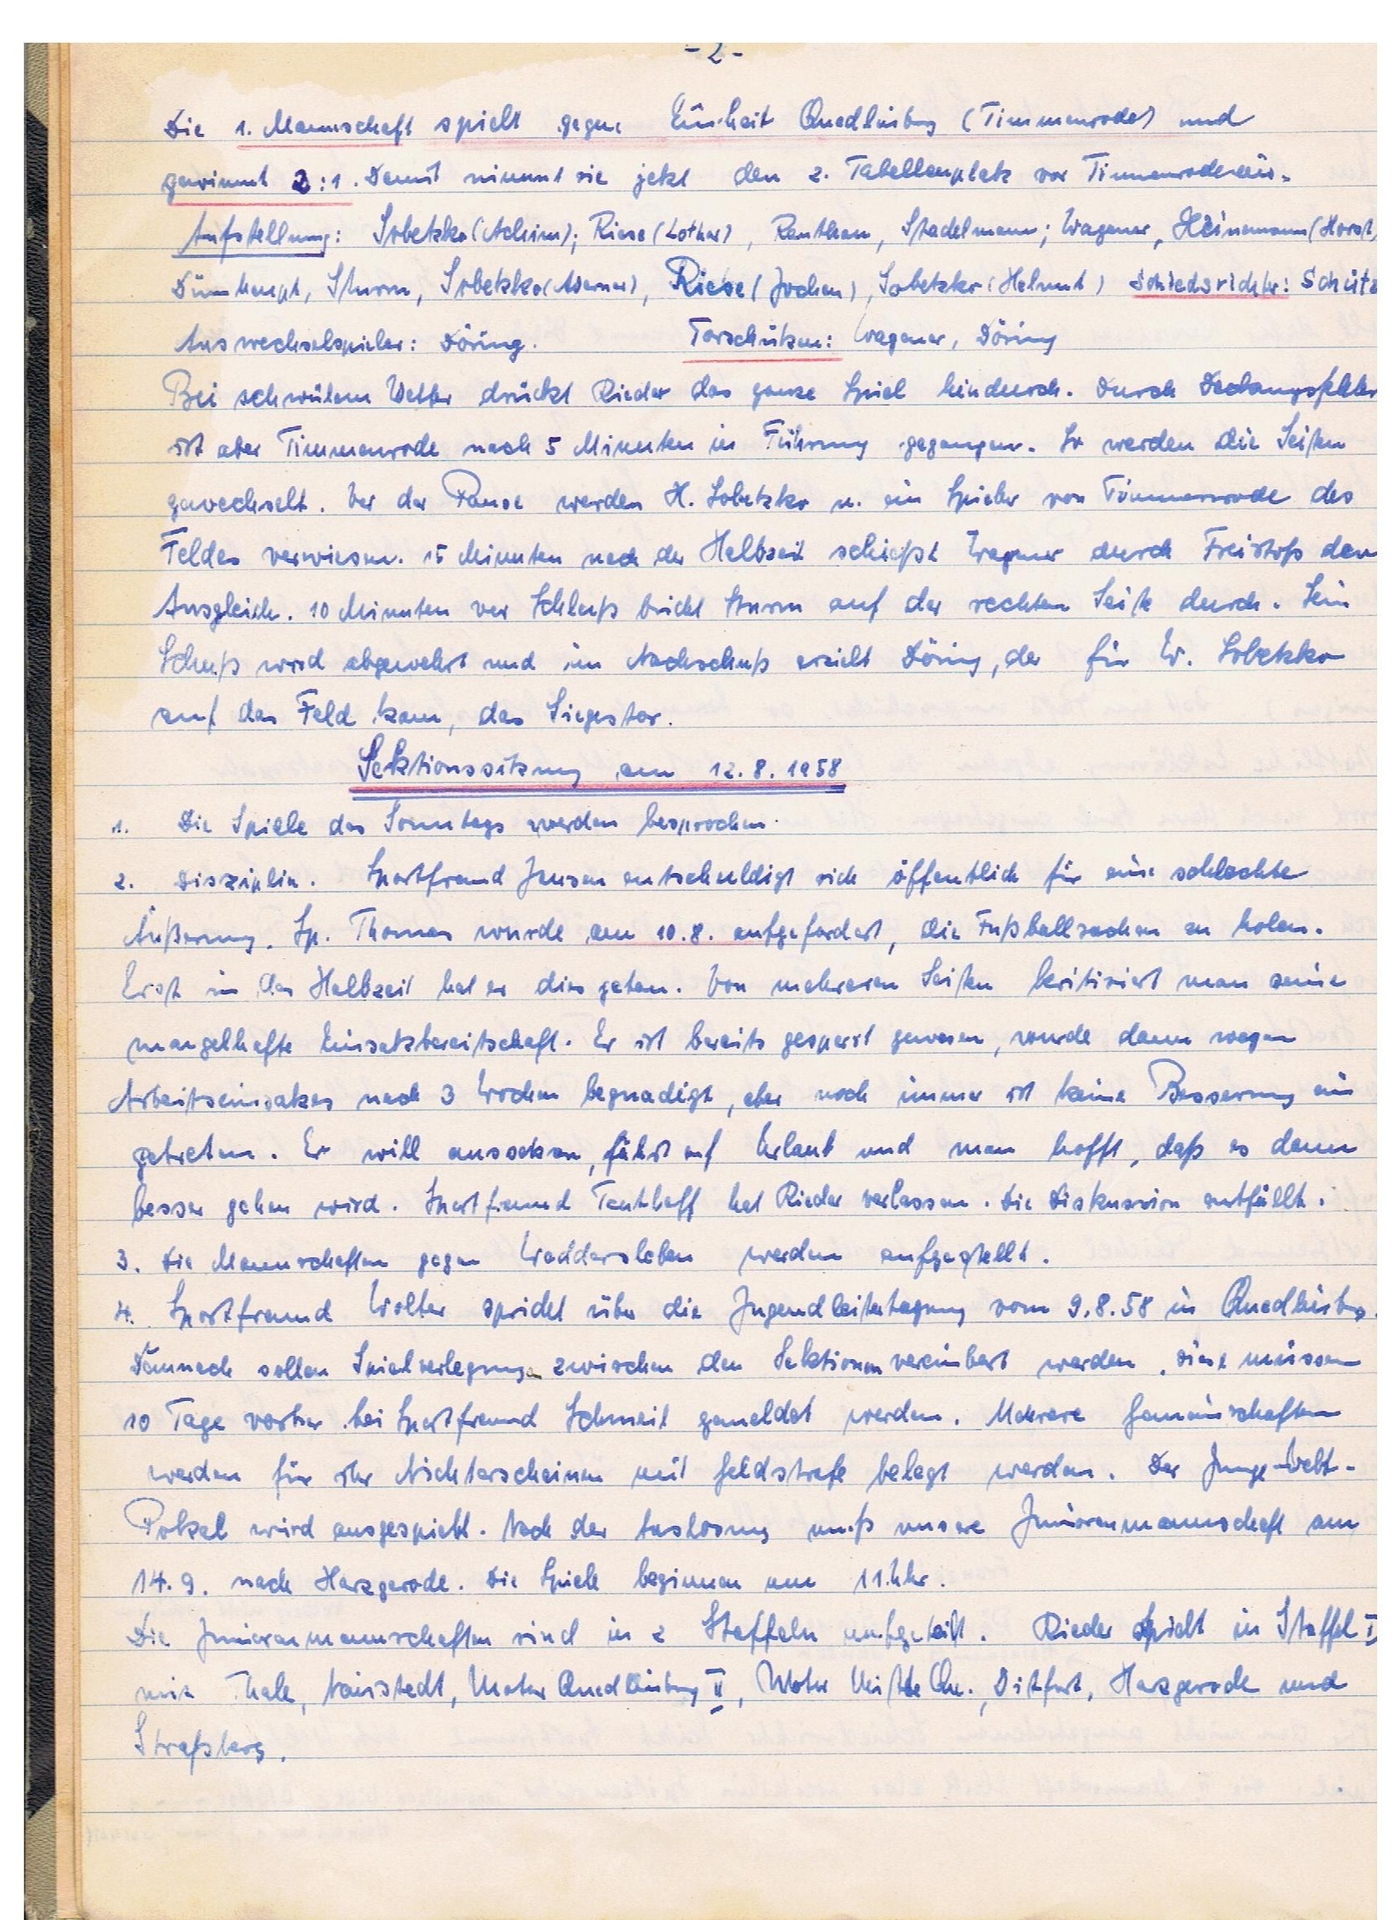 - 2 -
Die 1. Mannschaft spielt gegen Einheit Quedlinburg (Timmenrode) und
gewinnt 2:1. Damit nimmt sie jetzt den 2. Tabellenplatz vor Timmenrode ein.
Aufstellung: Sobetzko (Achim); Riese (Lothar), Ranthan, Stadelmann; Wagener, Heinemann (Horst)
Dümhaupt, Sturm, Sobetzko (Werner), Riese (Jochen), Sobetzko (Helmut) Schiedsrichter: Schütz
Auswechselspieler: Döring. Torschützen: Wagener, Döring
Bei schwülem Wetter drückt Rieder das ganze Spiel hindurch. Durch Deckungsfehler
ist aber Timmenrode nach 5 Minuten in Führung gegangen. So werden die Seiten
gewechselt. Vor der Pause werden H. Sobetzko u. ein Spieler von Timmenrode des
Feldes verwiesen. 15 Minuten nach der Halbzeit schießt Wagener durch Freistoß den
Ausgleich. 10 Minuten vor Schluß bricht Sturm auf der rechten Seite durch. Sein
Schuß wird abgewehrt und im Nachschuß erzielt Döring, der für W. Sobetzko
auf das Feld kam, das Siegestor.
Sektionssitzung am 12.8.1958
1. Die Spiele des Sonntags werden besprochen.
2. Disziplin. Sportfreund Jensen entschuldigt sich öffentlich für eine schlechte
Äußerung. Sp. Thomas wurde am 10.8. aufgefordert, die Fußballsachen zu holen.
Erst in der Halbzeit hat er dies getan. Von mehreren Seiten kritisiert man seine
mangelhafte Einsatzbereitschaft. Er ist bereits gesperrt gewesen, wurde dann wegen
Arbeitseinsatzes nach 3 Wochen begnadigt, aber noch immer ist keine Besserung ein
getreten. Er will aussetzen, fährt auf Urlaub und man hofft, daß es dann
besser gehen wird. Sportfreund Tauthoff hat Rieder verlassen. Die Diskussion entfällt.
3. Die Mannschaften gegen Weddersleben werden aufgestellt.
4. Sportfreund Wolter spricht über die Jugendleitertagung vom 9.8.58 in Quedlinburg.
Demnach sollen Spielverlegungen zwischen den Sektionen vereinbart werden, diese müssen
10 Tage vorher bei Sportfreund Schmeil gemeldet werden. Mehrere Gemeinschaften
werden für ihr Nichterscheinen mit Geldstrafe belegt werden. Der Junge-Welt-
Pokal wird ausgespielt. Nach der Auslosung muß unsere Juniorenmannschaft am
14.9. nach Harzgerode. Die Spiele beginnen um 11 Uhr.
Die Juniorenmannschaften sind in 2 Staffeln aufgeteilt. Rieder spielt in Staffel I
mit Thale, Neinstedt, Motor Quedlinburg II, Motor Mitte Qu., Ditfurt, Harzgerode und
Straßberg.